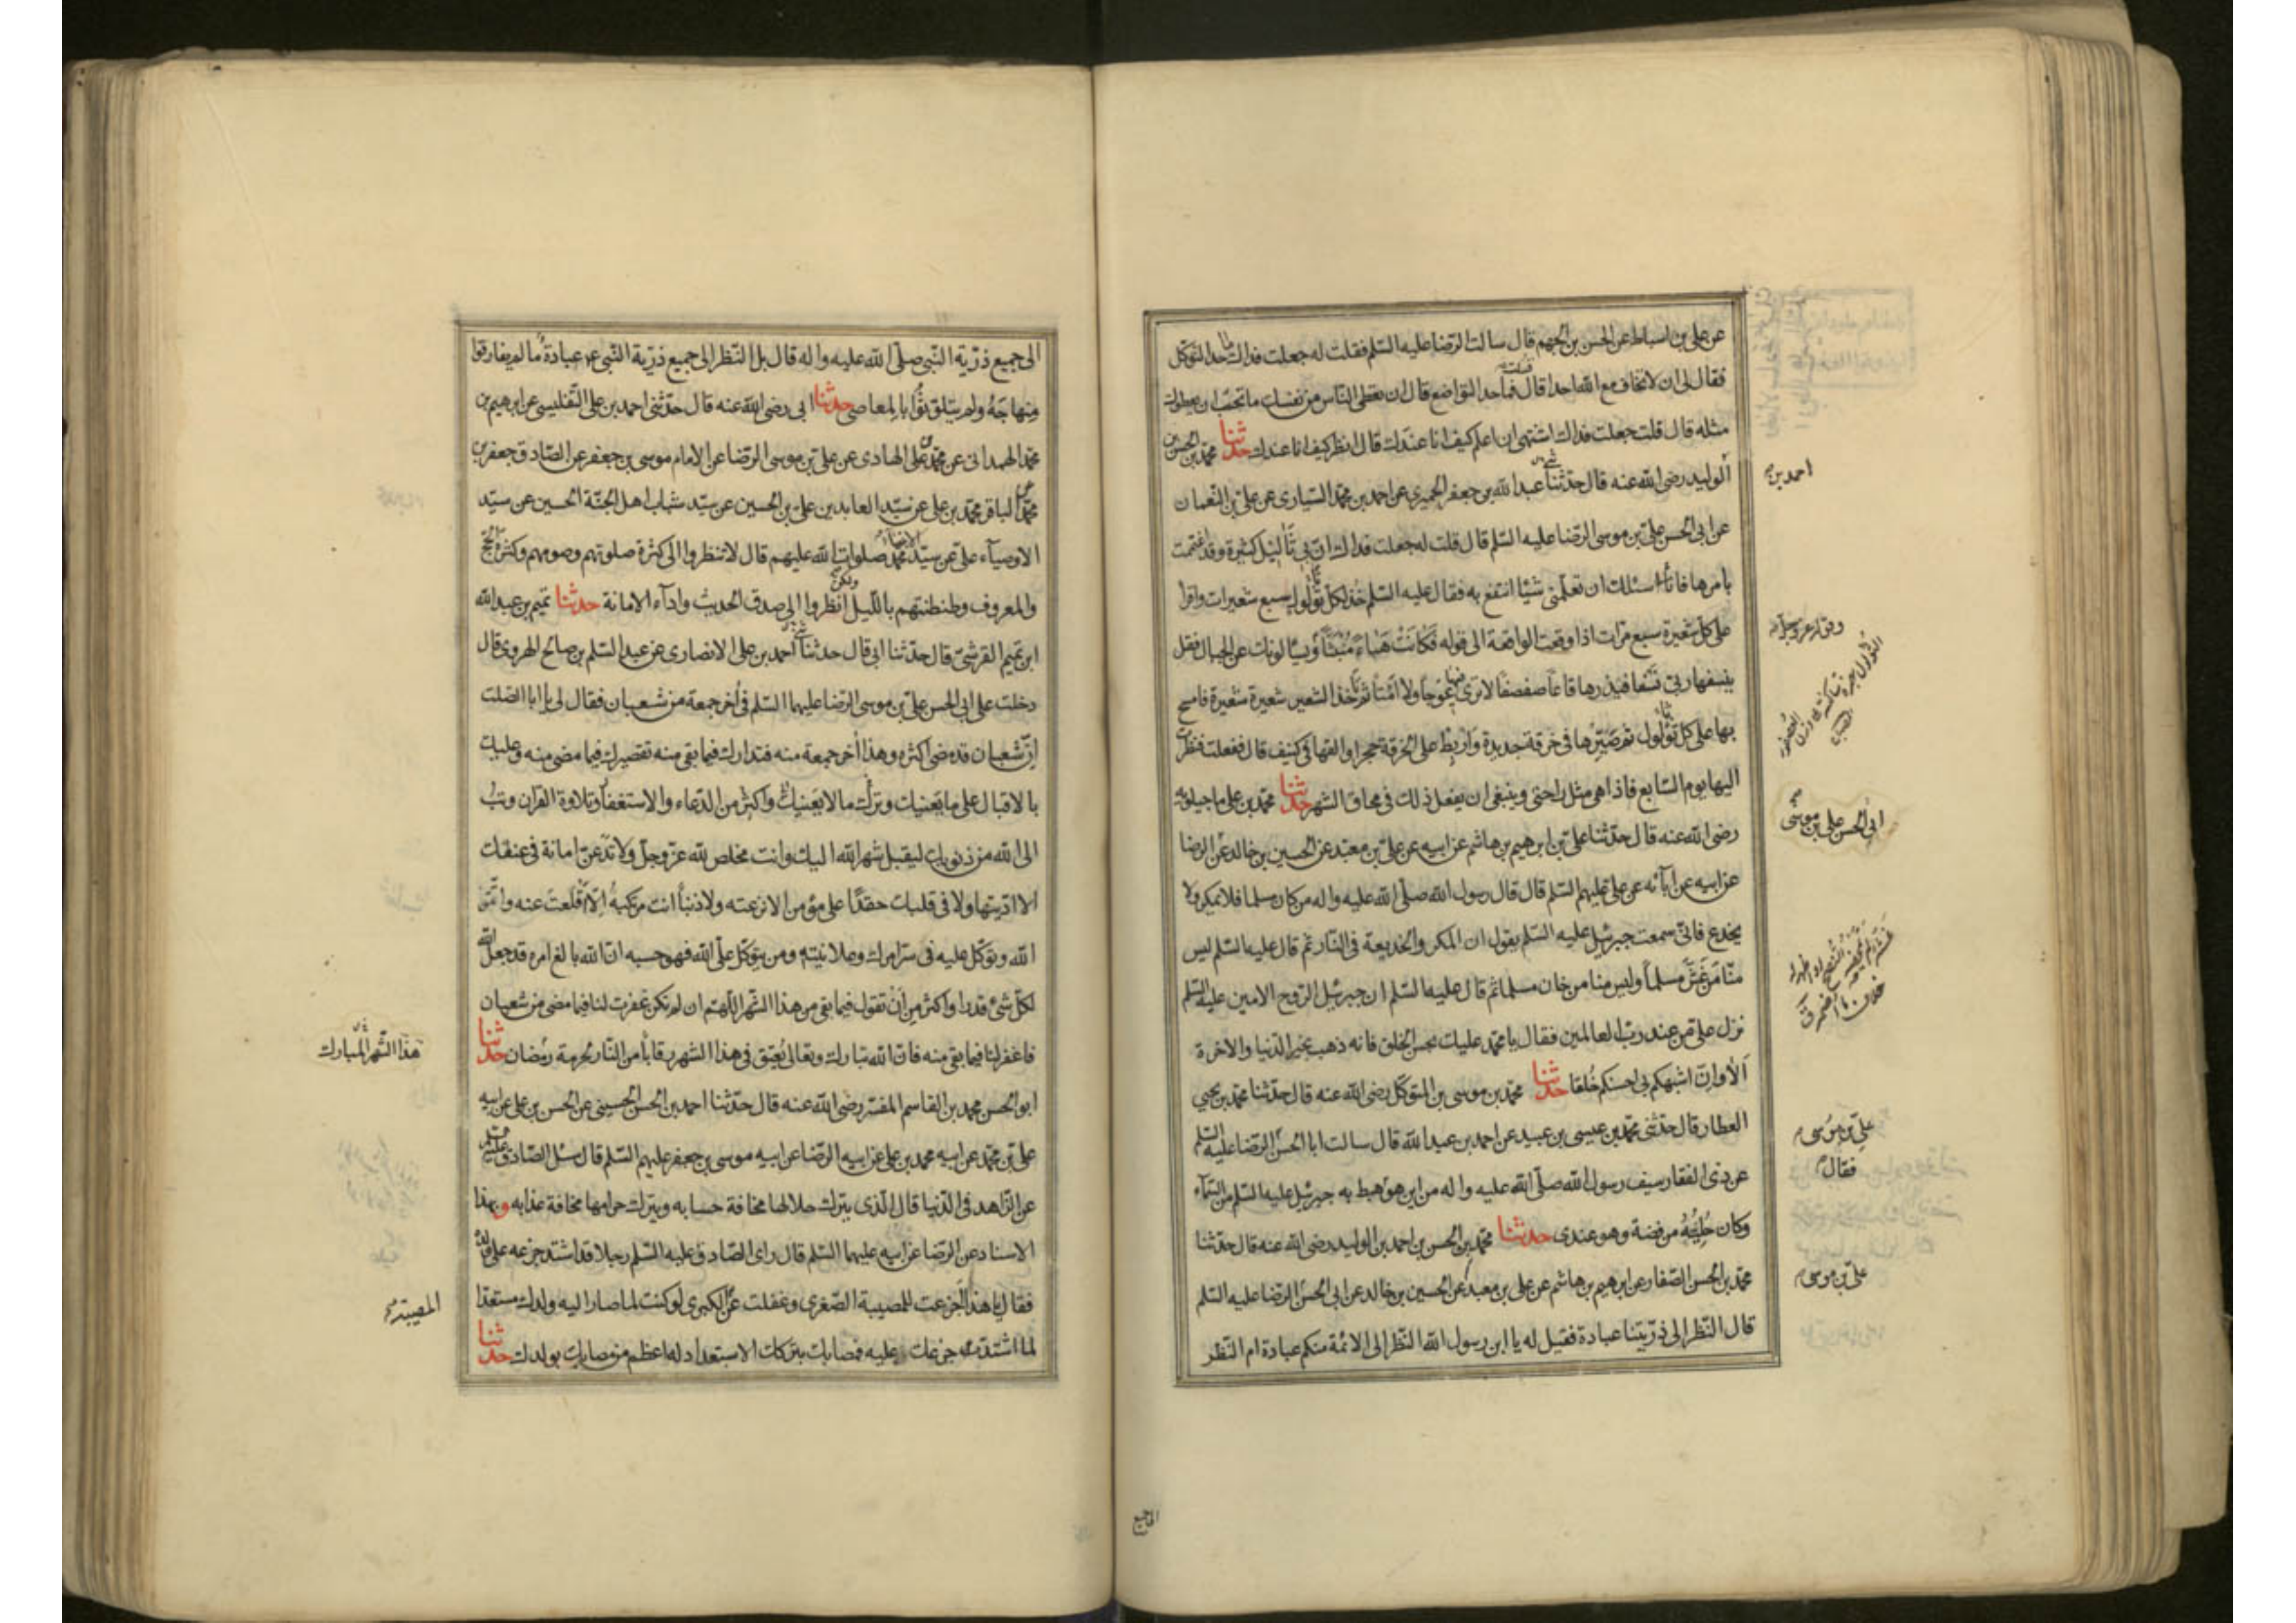 عن علي بن اسباط عن الحسن بن الجهم قال سالت الرضا عليه السلم فقلت له جعلت فداك ما حد التوكل
فقال لى ان لا تخاف مع الله احدا قال قلت فما حد التواضع قال ان تعطى الناس من نفسك ما تحب ان يعطوك
مثله قال قلت جعلت فداك اشتهى ان اعلم كيف انا عندك قال انظر كيف انا عندك حدثنا محمد بن الحسن بن
احمد بن
الوليد رضى الله عنه قال حدثنا عبد الله بن جعفر الحميرى عن احمد بن محمد السيارى عن على بن النعمان
عن ابى الحسن على بن موسى الرضا عليه السلم قال قلت له جعلت فداك ان بى ثآليل كثيرة وقد اغتممت
بامرها فانا اسئلك ان تعلمنى شيئا انتفع به فقال عليه السلم خذ لكل ثؤلول سبع شعيرات واقرا
على كل شعيرة سبع مرات اذا وقعت الواقعة الى قوله فكانت هباء منبثا ويسالونك عن الجبال فقل
ينسفها ربى نسفا فيذرها قاعا صفصفا لا ترى فيها عوجا ولا امتا ثم تاخذ الشعير شعيرة شعيرة فامسح
بها على كل ثؤلول ثم صيرها فى خرقة جديدة واربط على الخرقة حجرا والقها فى كنيف قال ففعلت فنظرت
اليها يوم السابع فاذا هى مثل راحتى وينبغى ان يفعل ذلك فى محاق الشهر حدثنا محمد بن على ماجيلويه
رضى الله عنه قال حدثنا على بن ابرهيم بن هاشم عن ابيه عن على بن معبد عن الحسين بن خالد عن الرضا
ابى الحسن على بن موسى
عن ابيه عن آبائه عن على عليهم السلم قال قال رسول الله صلى الله عليه واله من كان مسلما فلا يمكر ولا
يخدع فانى سمعت جبرئيل عليه السلم يقول ان المكر والخديعة فى النار ثم قال عليه السلم ليس
منا من غش مسلما وليس منا من خان مسلما ثم قال عليه السلم ان جبرئيل الروح الامين عليه السلم
نزل على من عند رب العالمين فقال يا محمد عليك بحسن الخلق فانه ذهب بخير الدنيا والاخرة
الا وان اشبهكم بى احسنكم خلقا حدثنا محمد بن موسى بن المتوكل رضى الله عنه قال حدثنا محمد بن يحيى
العطار قال حدثنى محمد بن عيسى بن عبيد عن احمد بن عبد الله قال سالت ابا الحسن الرضا عليه السلم
على بن موسى
عن ذى الفقار سيف رسول الله صلى الله عليه واله من اين هو هبط به جبرئيل عليه السلم من السماء
فقال
وكان حليته من فضة وهو عندى حدثنا محمد بن الحسن بن احمد بن الوليد رضى الله عنه قال حدثنا
محمد بن الحسن الصفار عن ابرهيم بن هاشم عن على بن معبد عن الحسين بن خالد عن ابى الحسن الرضا عليه السلم
على بن موسى
قال النظر الى ذريتنا عبادة فقيل له يا ابن رسول الله النظر الى الائمة منكم عبادة ام النظر
الى جميع ذرية النبى صلى الله عليه واله قال بل النظر الى جميع ذرية النبى ع عبادة ما لم يفارقوا
منهاجه ولم يتلوثوا بالمعاصى حدثنا ابى رضى الله عنه قال حدثنى احمد بن على التفليسى عن ابرهيم بن
محمد الهمدانى عن محمد بن على الهادى عن على بن موسى الرضا عن الامام موسى بن جعفر عن الصادق جعفر بن
محمد عن الباقر محمد بن على عن سيد العابدين على بن الحسين عن سيد شباب اهل الجنة الحسين عن سيد
الاوصيآء على عن سيد الانبياء محمد صلوات الله عليهم قال لا تنظروا الى كثرة صلوتهم وصومهم وكثرة الحج
والمعروف وطنطنتهم بالليل ولكن انظروا الى صدق الحديث وادآء الامانة حدثنا تميم بن عبد الله
ابن تميم القرشى قال حدثنا ابى قال حدثنا احمد بن على الانصارى عن عبد السلم بن صالح الهروى قال
دخلت على ابى الحسن على بن موسى الرضا عليهما السلم فى أخر جمعة من شعبان فقال لى يا ابا الصلت
ان شعبان قد مضى اكثره وهذا أخر جمعة منه فتدارك فيما بقى منه تقصيرك فيما مضى منه وعليك
بالاقبال على ما يعنيك وترك ما لا يعنيك واكثر من الدعاء والاستغفار وتلاوة القرآن وتب
الى الله من ذنوبك ليقبل شهر الله اليك وانت مخلص لله عز وجل ولا تدعن امانة فى عنقك
الا اديتها ولا فى قلبك حقدا على مؤمن الا نزعته ولا ذنبا انت مرتكبه الا قلعت عنه واتق
الله وتوكل عليه فى سرائرك وعلانيته ومن يتوكل على الله فهو حسبه ان الله بالغ امره قد جعل الله
لكل شئ قدرا واكثر من أن تقول فيما بقى من هذا الشهر اللهم ان لم تكن غفرت لنا فيما مضى من شعبان
هذا الشهر المبارك
فاغفر لنا فيما بقى منه فان الله تبارك وتعالى يعتق فى هذا الشهر رقابا من النار لحرمة رمضان حدثنا
ابو الحسن محمد بن القاسم المفسر رضى الله عنه قال حدثنا احمد بن الحسن الحسينى عن الحسن بن على عن ابيه
على بن محمد عن ابيه محمد بن على عن ابيه الرضا عن ابيه موسى بن جعفر عليهم السلم قال سئل الصادق عليه السلم
عن الزاهد فى الدنيا قال الذى يترك حلالها مخافة حسابه ويترك حرامها مخافة عذابه وبهذا
الاسناد عن الرضا عن ابيه عليهما السلم قال راى الصادق عليه السلم رجلا قد اشتد جزعه على ولده
فقال يا هذا اجزعت للمصيبة الصغرى وغفلت عن الكبرى لو كنت لما صار اليه ولدك مستعدا
المصيبة
لما اشتد جزعك عليه فمصابك بتركك الاستعداد له اعظم من مصابك بولدك حدثنا